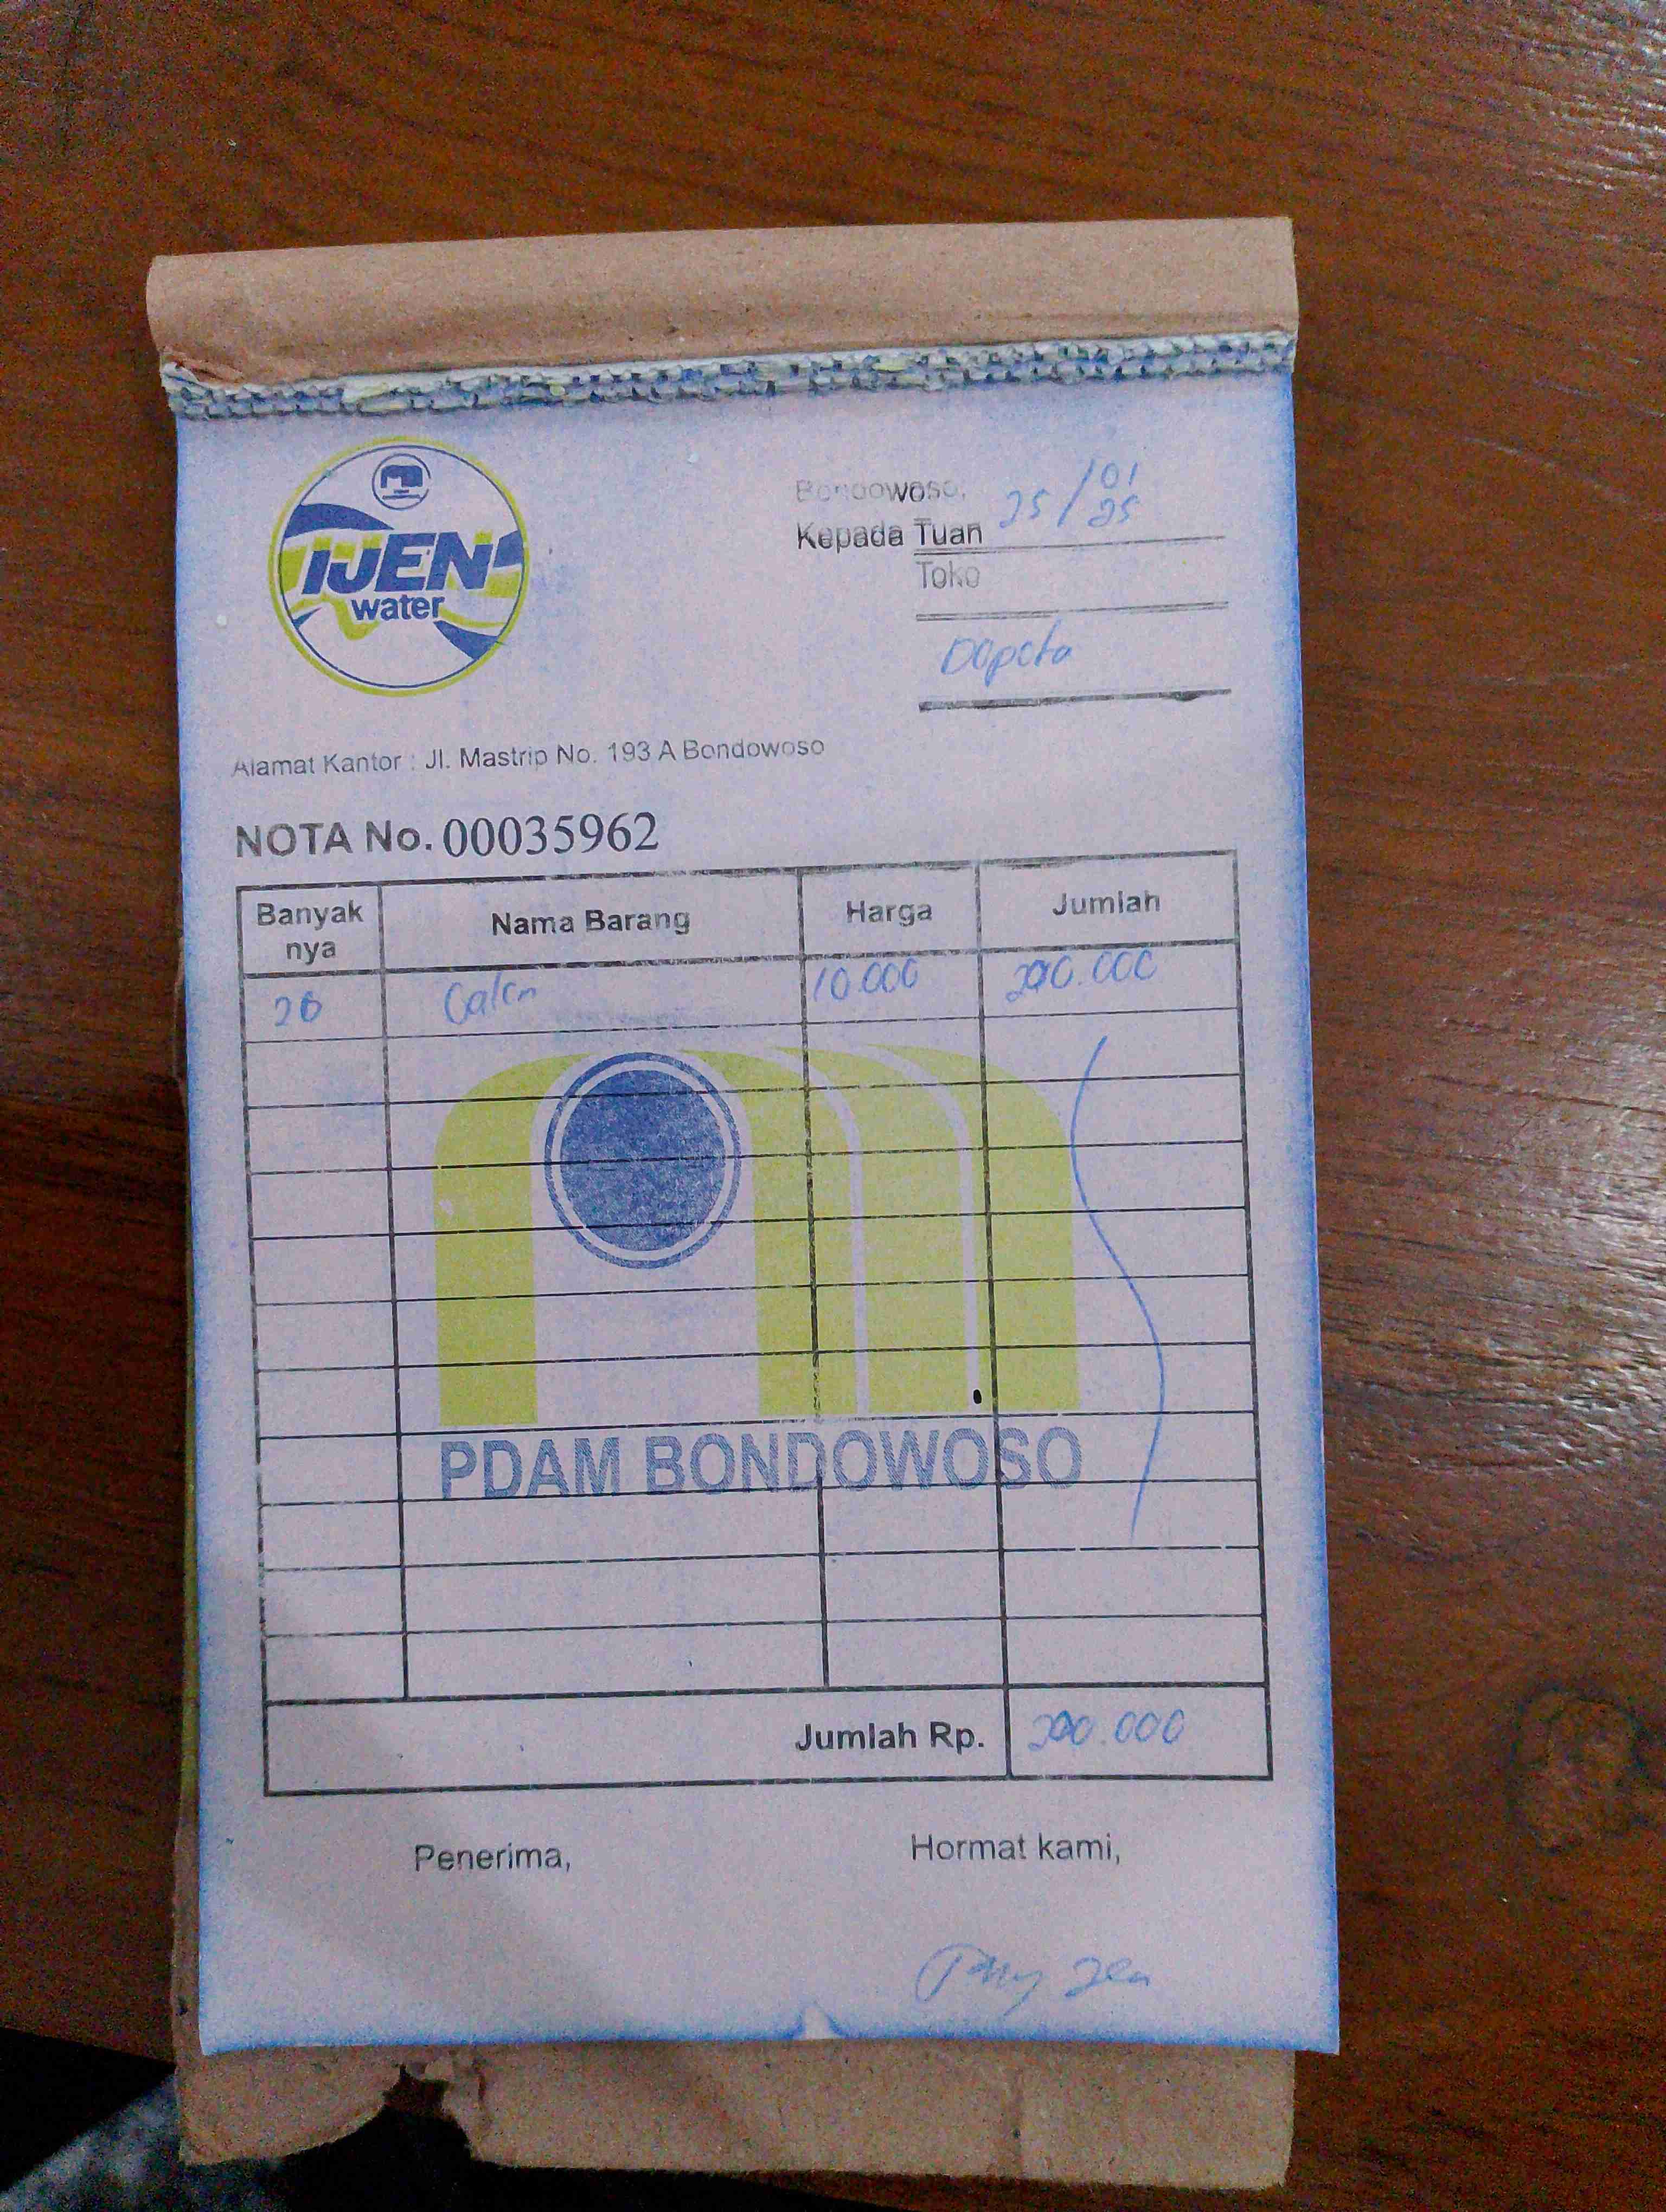 IJEN
water
Bondowoso, 25/01
25
Kepada Tuan
Toko
Alamat Kantor : Jl. Mastrip No. 193 A Bondowoso
NOTA No. 00035962
Banyak nya Nama Barang Harga Jumlah
20 Galon 10.000 200.000
PDAM BONDOWOSO
Jumlah Rp. 200.000
Penerima, Hormat kami,